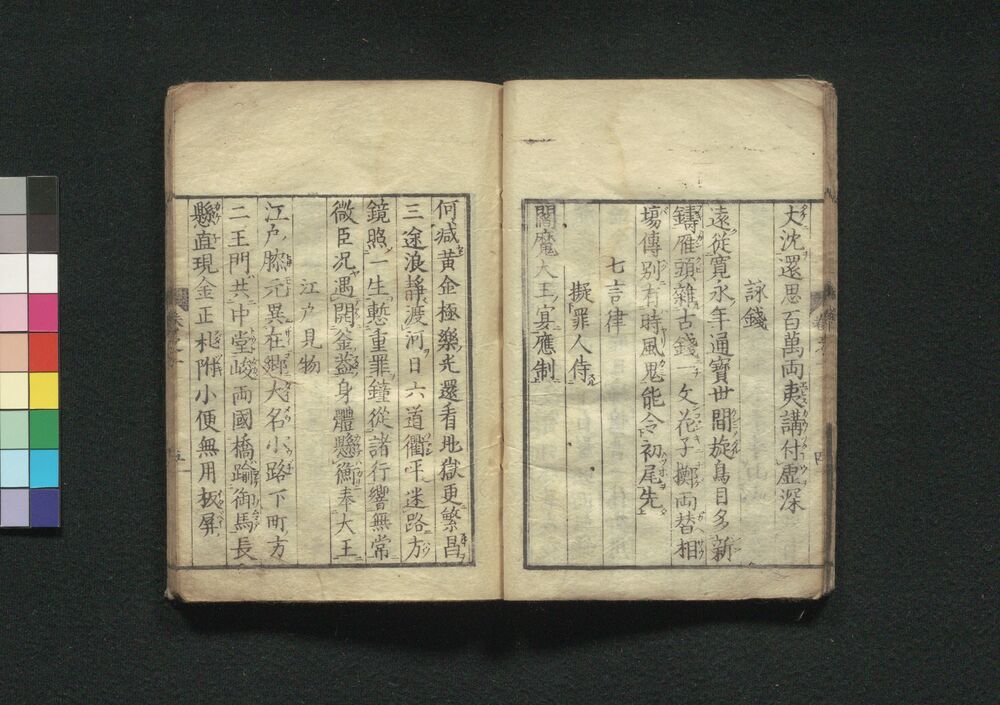 大沈還思百萬両夷講付虚深
詠錢
遠從寛永年通寶世間旋鳥目多新
鑄雁頭雜古錢一文花子擲両替相
場傳別有時風鬼能令初尾先
七言律
擬罪人侍
閻魔大王宴應制
何減黄金極樂光還看地獄更繁昌
三途浪靜渡河日六道衢平迷路方
鏡照一生慙重罪鐘從諸行響無常
微臣况遇開釜蓋身體懸衡奉大王
江戸見物
江戸膝元異在郷大名小路下町方
二王門共中堂峻両國橋踰御馬長
懸直現金正札附小便無用板屏